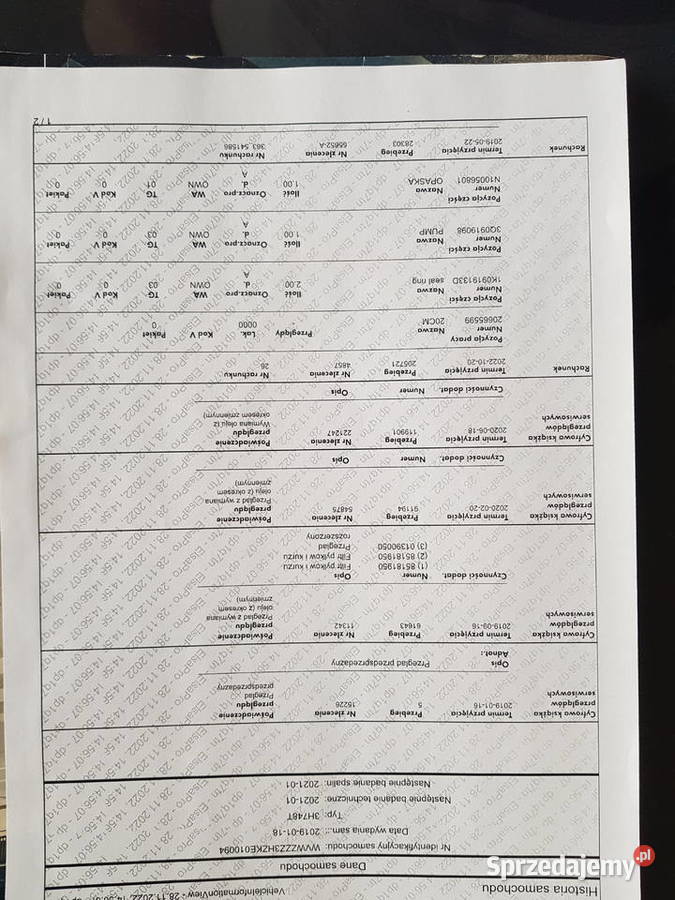 Historia samochodu
VehicleInformationView - 28.11.2022, 14:56:07
Dane samochodu
Nr identyfikacyjny samochodu: WVWZZZ3HZKE010094
Data wydania sam.: 2019-01-18
Typ: 3H748T
Następnie badanie techniczne: 2021-01
Następnie badanie spalin: 2021-01
Cyfrowa książka przeglądów serwisowych
Termin przyjęcia Przebieg Nr zlecenia Poświadczenie przeglądu
2019-01-16 5 15226 Przegląd przedsprzedażny
Opis Przegląd przedsprzedażny
Adnot.:
Cyfrowa książka przeglądów serwisowych
Termin przyjęcia Przebieg Nr zlecenia Poświadczenie przeglądu
2019-09-16 61643 11342 Przegląd z wymianą oleju (z okresem zmiennym)
Czynności dodat. Numer Opis
(1) 85181950 Filtr pyłków i kurzu
(2) 85181950 Filtr pyłków i kurzu
(3) 01390050 Przegląd rozszerzony
Cyfrowa książka przeglądów serwisowych
Termin przyjęcia Przebieg Nr zlecenia Poświadczenie przeglądu
2020-02-20 91194 54875 Przegląd z wymianą oleju (z okresem zmiennym)
Czynności dodat. Numer Opis
Cyfrowa książka przeglądów serwisowych
Termin przyjęcia Przebieg Nr zlecenia Poświadczenie przeglądu
2020-06-18 119901 221247 Wymiana oleju (z okresem zmiennym)
Czynności dodat. Numer Opis
Rachunek Termin przyjęcia Przebieg Nr zlecenia Nr rachunku
2022-10-20 205721 4857 26
Pozycja pracy
Numer Nazwa Przeglądy Lak. Kod V Pakiet
20665599 20CM 0000 0
Pozycja części
Numer Nazwa Ilość Oznacz.prod. WA TG Kod V Pakiet
1K0919133D seal ring 2.00 A OWN 03 0 0
Pozycja części
Numer Nazwa Ilość Oznacz.prod. WA TG Kod V Pakiet
3Q0919098 PUMP 1.00 A OWN 03 0 0
Pozycja części
Numer Nazwa Ilość Oznacz.prod. WA TG Kod V Pakiet
N10056801 OPASKA 1.00 A OWN 01 0 0
Rachunek Termin przyjęcia Przebieg Nr zlecenia Nr rachunku
2019-05-22 28303 65652-A 363 541586
1 / 2
Sprzedajemy.pl